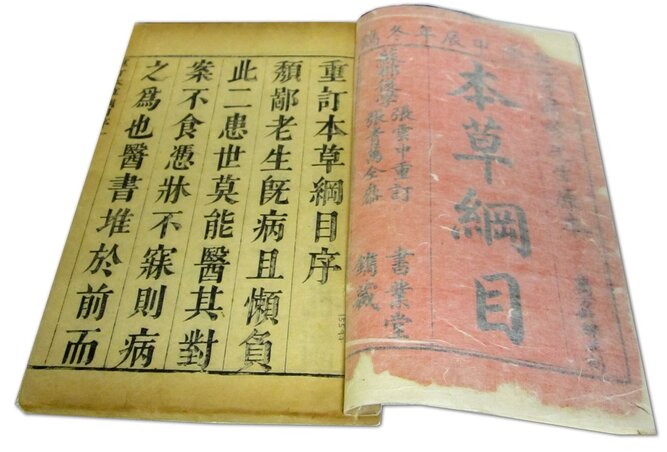 甲辰年冬鐫
本草綱目
張雲中重訂
張青萬仝參
書業堂
鐫藏
重訂本草綱目序
頽鄙老生旣病且懶負
此二患世莫能醫其對
案不食憑牀不寐則病
之爲也醫書堆於前而